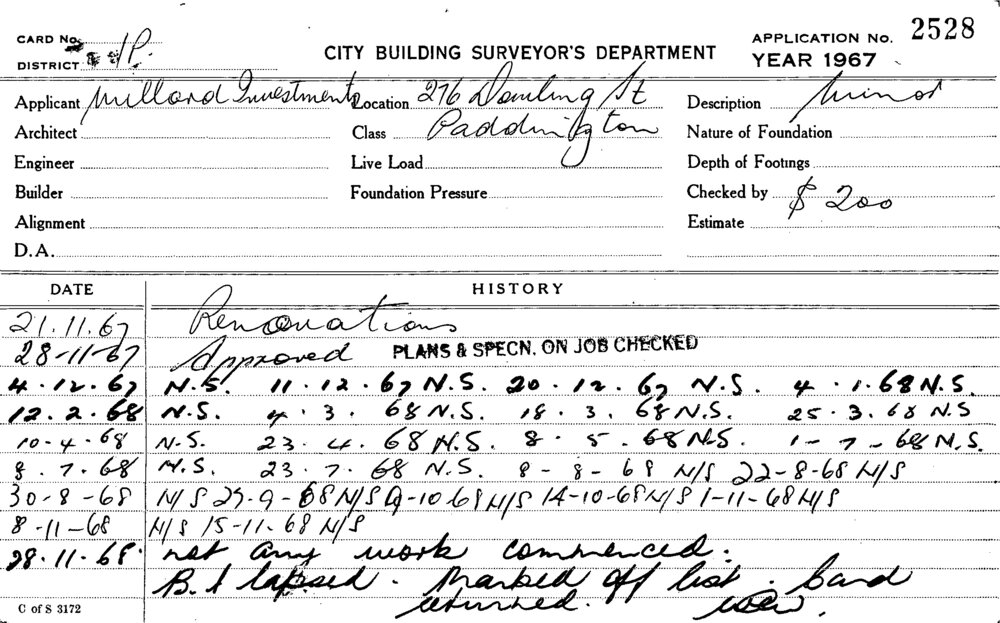 CARD No. APPLICATION No. 2528
DISTRICT P. CITY BUILDING SURVEYOR'S DEPARTMENT YEAR 1967
Applicant Millard Investments Location 276 Dowling St Description Minor
Architect Class Paddington Nature of Foundation
Engineer Live Load Depth of Footings
Builder Foundation Pressure Checked by $ 200
Alignment Estimate
D.A.
DATE HISTORY
21.11.67 Renovations
28-11-67 Approved PLANS & SPECN. ON JOB CHECKED
4.12.67 N.S. 11.12.67 N.S. 20.12.67 N.S. 4.1.68 N.S.
12.2.68 N.S. 4.3.68 N.S. 18.3.68 N.S. 25.3.68 N.S
10-4-68 N.S. 23.4.68 N.S. 8.5.68 N.S. 1-7-68 N.S.
8.7.68 N.S. 23.7.68 N.S. 8-8-68 N/S 22-8-68 N/S
30-8-68 N/S 27-9-68 N/S 9-10-68 N/S 14-10-68 N/S 1-11-68 N/S
8-11-68 N/S 15-11-68 N/S
28.11.68. not any work commenced.
B.A lapsed. Marked off list. Card
returned.
C of S 3172